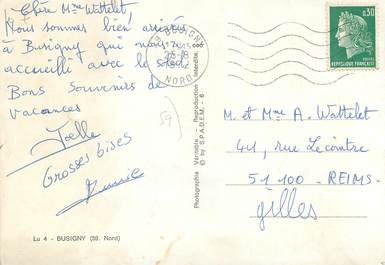 Chère Mme Wattelet,
Nous sommes bien arrivés
à Busigny qui nous a
accueilli avec le soleil
Bons Souvenirs de
vacances
Joelle
Grosses bises
Lu 4 - BUSIGNY (59. Nord)
Photographie Véritable - Reproduction Interdite
© by S.P.A.D.E.M. - 6
59 BUSIGNY
NORD
0,30
REPUBLIQUE FRANCAISE
POSTES
59
M. et Mme A. Wattelet
41, rue Lecointre
51 100 - REIMS-
Gilles